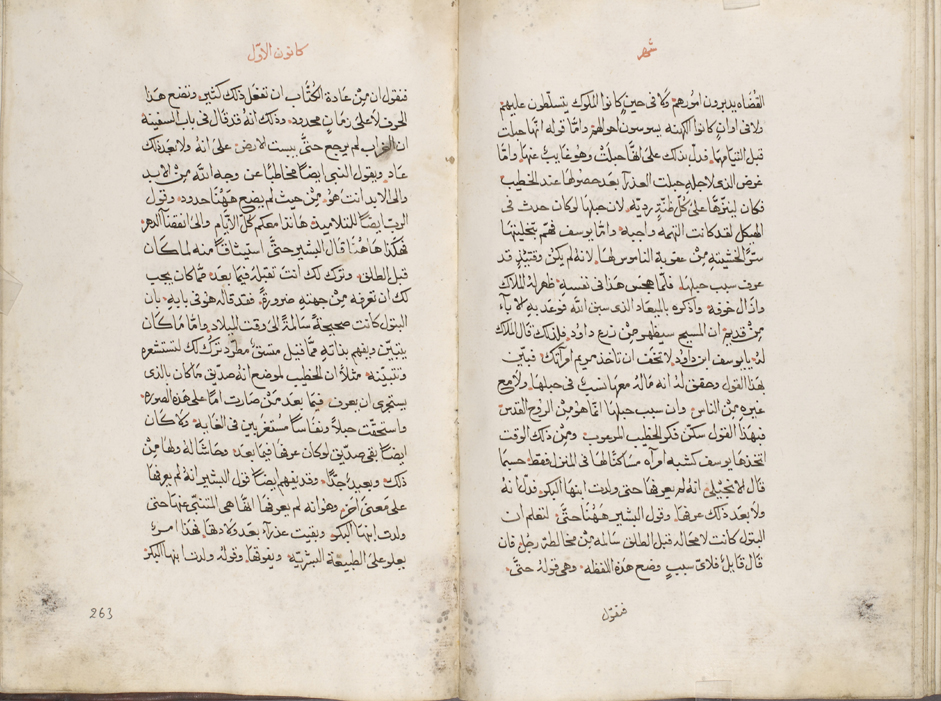 شهر
القضاه يدبرون امورهم ولا في حين كانوا الملوك يتسلطون عليهم
ولا في اوان كانوا الكهنه يسوسون احوالهم وامّا قوله انّها حبلت
قبل التيامهما فدلّ بذلك على انّها حبلت وهو غايب عنها وامّا
غرض الذي لاجله حبلت العذرآ بعد حصولها عند الخطيب
فكان لينزهها على كُلّ ظنّيّة رديّه لان حبلها لو كان حدث في
الهيكل لقد كانت التهمه واجبه وامّا يوسف فهمّ بتخليتها
سرّاً لخشيته من عقوبة الناموس لها لانه لم يكن وقتيذٍ قد
عرف سبب حبلها فلمّا هجس هذا في نفسه ظهر له الملاك
وازال خوفه واذكره بالميعاد الذي سبق الله فوعد به الابآء
من قديم ان المسيح سيظهر من زرع داود فلذلك قال الملاك
له يا يوسف ابن داود لا تخف ان تاخذ مريم امرأتك فبيّن
بهذا القول وحقق له انه ماله معها نسب في حبلها ولا مع
غيره من الناس وان سبب حبلها انّما هو من الروح القدس
فبهذا القول سكّن ذكر الخطيب المرعوب ومن ذلك الوقت
اتخذها يوسف كشبه امرأه مساكنًا لها في المنزل فقط حسبما
قال الانجيلي انه لم يعرفها حتى ولدت ابنها البكر فدلّ انه
ولا بعد ذلك عرفها وقول البشير ههُنا حتّى لتعلم ان
البتول كانت لا محاله قبل الطلق سالمه من مخالطة رجلٍ فان
قال قايلٌ فلايّ سببٍ وضع هذه اللفظه وهي قوله حتّى
فنقول
كانون الاوّل
فنقول ان من عادة الكُتّاب ان تفعل ذلك كثير وتضع هذا
الحرف لا على زمانٍ محدود وذلك انه قد قال في باب السفينة
ان الغراب لم يرجع حتّى يبست الارض على انه ولا بعد ذلك
عاد ويقول النبي ايضاً مخاطباً عن وجه الله من الابد
والى الابد انت هو من حيث لم يضع ههُنا حدود وقول
الربّ ايضاً للتلاميذ هانذا معكم كلّ الايّام والى انقضآ الدهر
فهكذا هاهُنا قال البشير حتّى استيثاقاً منه لما كان
قبل الطلق وترك لك انت تقبله فيما بعد فما كان يجب
لك ان تعرفه من جهته ضرورةً فقد قاله هو في بابه بان
البتول كانت صحيحةً سالمةً الى وقت الميلاد وامّا ما كان
يتبيّن ويفهم بذاته ممّا قيل متسق مطّرد ترك لك لتستشعره
وتتبيّنه مثلاً ان الخطيب لموضع انه صدّيق ما كان بالذي
يستجري ان يعرف فيما بعد من صارت امّا على هذه الصورة
واستحقّت حبلاً ونفاساً مستغربين في الغاية ولا كان
ايضاً بقي صدّيق لو كان عرفها فيما بعد وحاشا له ولها من
ذلك وبعيدٌ جدّاً وقد يفهم ايضاً قول البشير انه لم يعرفها
على معنىً اخر وهو انه لم يعرفها انّها هي المتنبّي عنها حتى
ولدت ابنها البكر وبقيت عذرآء بعد ولادها فهذا امرٌ
يعلو على الطبيعة البشريّه ويفوقها وقوله ولدت ابنها البكر
263